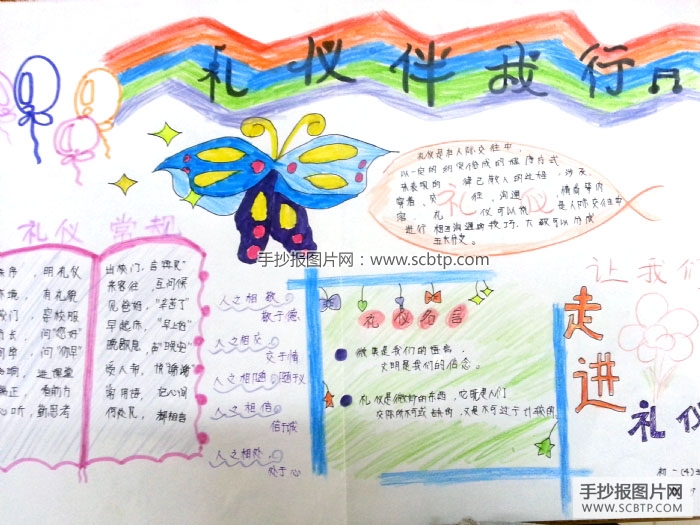 礼仪伴我行
礼仪是在人际交往中,
以一定的约定俗成的程序方式
来表现的律己敬人的过程,涉及
穿着、交往、沟通、情商等内
容。礼仪可以说是人际交往中
进行相互沟通的技巧。大致可以分成
五大分支。
礼仪
礼仪常规
序,明礼仪
境,有礼貌
们,穿校服
长,问"您好"
响,进课堂
正,看前方
听,勤思考
出校门,
来客往,互问候
见爸妈,"早苦了"
早起床,"早上好"
晚歇息,
烦人帮,
常用语,记心间
何处见,都相告
人之相敬
敬于德
人之相交
交于情
人之相随 随于
人之相信
信于诚
人之相处,
处于心
礼仪名言
微笑是我们的语言,
文明是我们的信念。
礼仪是微妙的东西,它既是人们
交际所不可或缺的,又是不可过于计较的
让我们
走进
礼仪
初一(4)
手抄报图片网:www.scbtp.com
手抄报图片网
SCBTP.COM